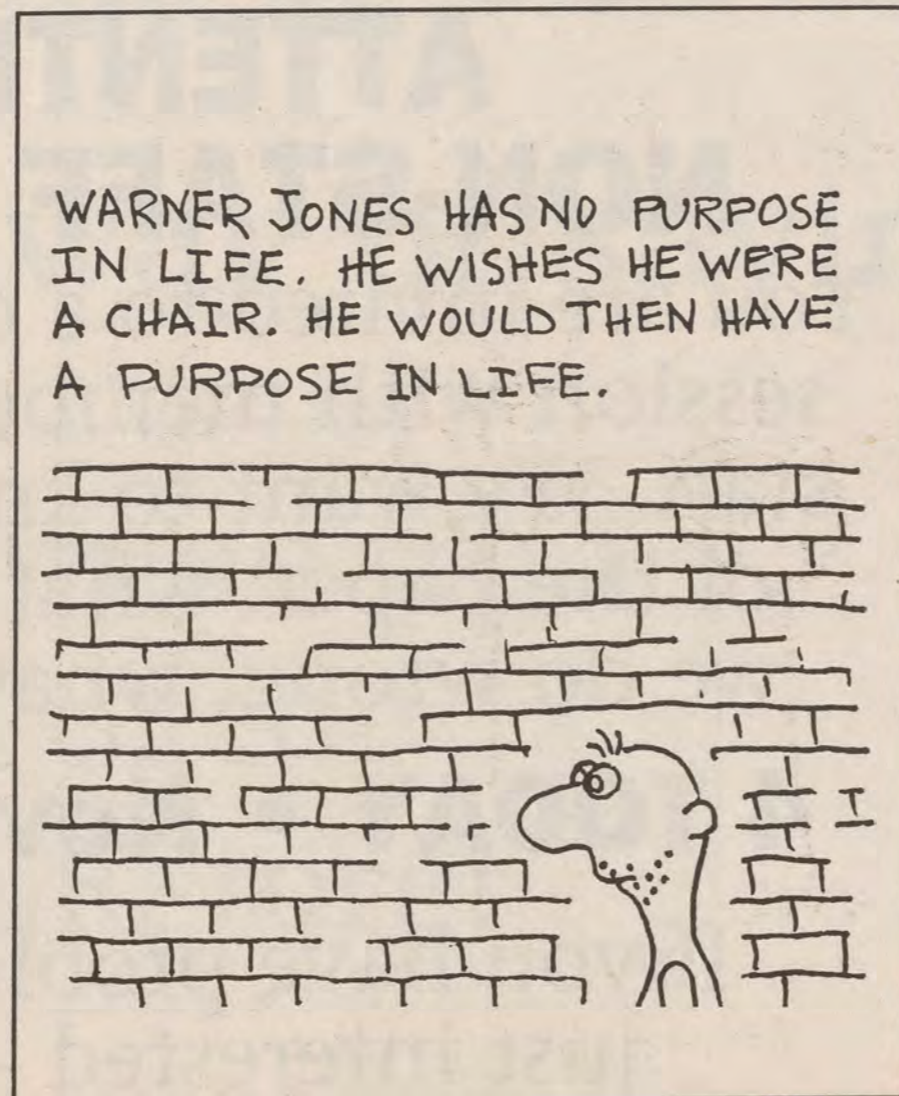 WARNER JONES HAS NO PURPOSE
IN LIFE. HE WISHES HE WERE
A CHAIR. HE WOULD THEN HAVE
A PURPOSE IN LIFE.